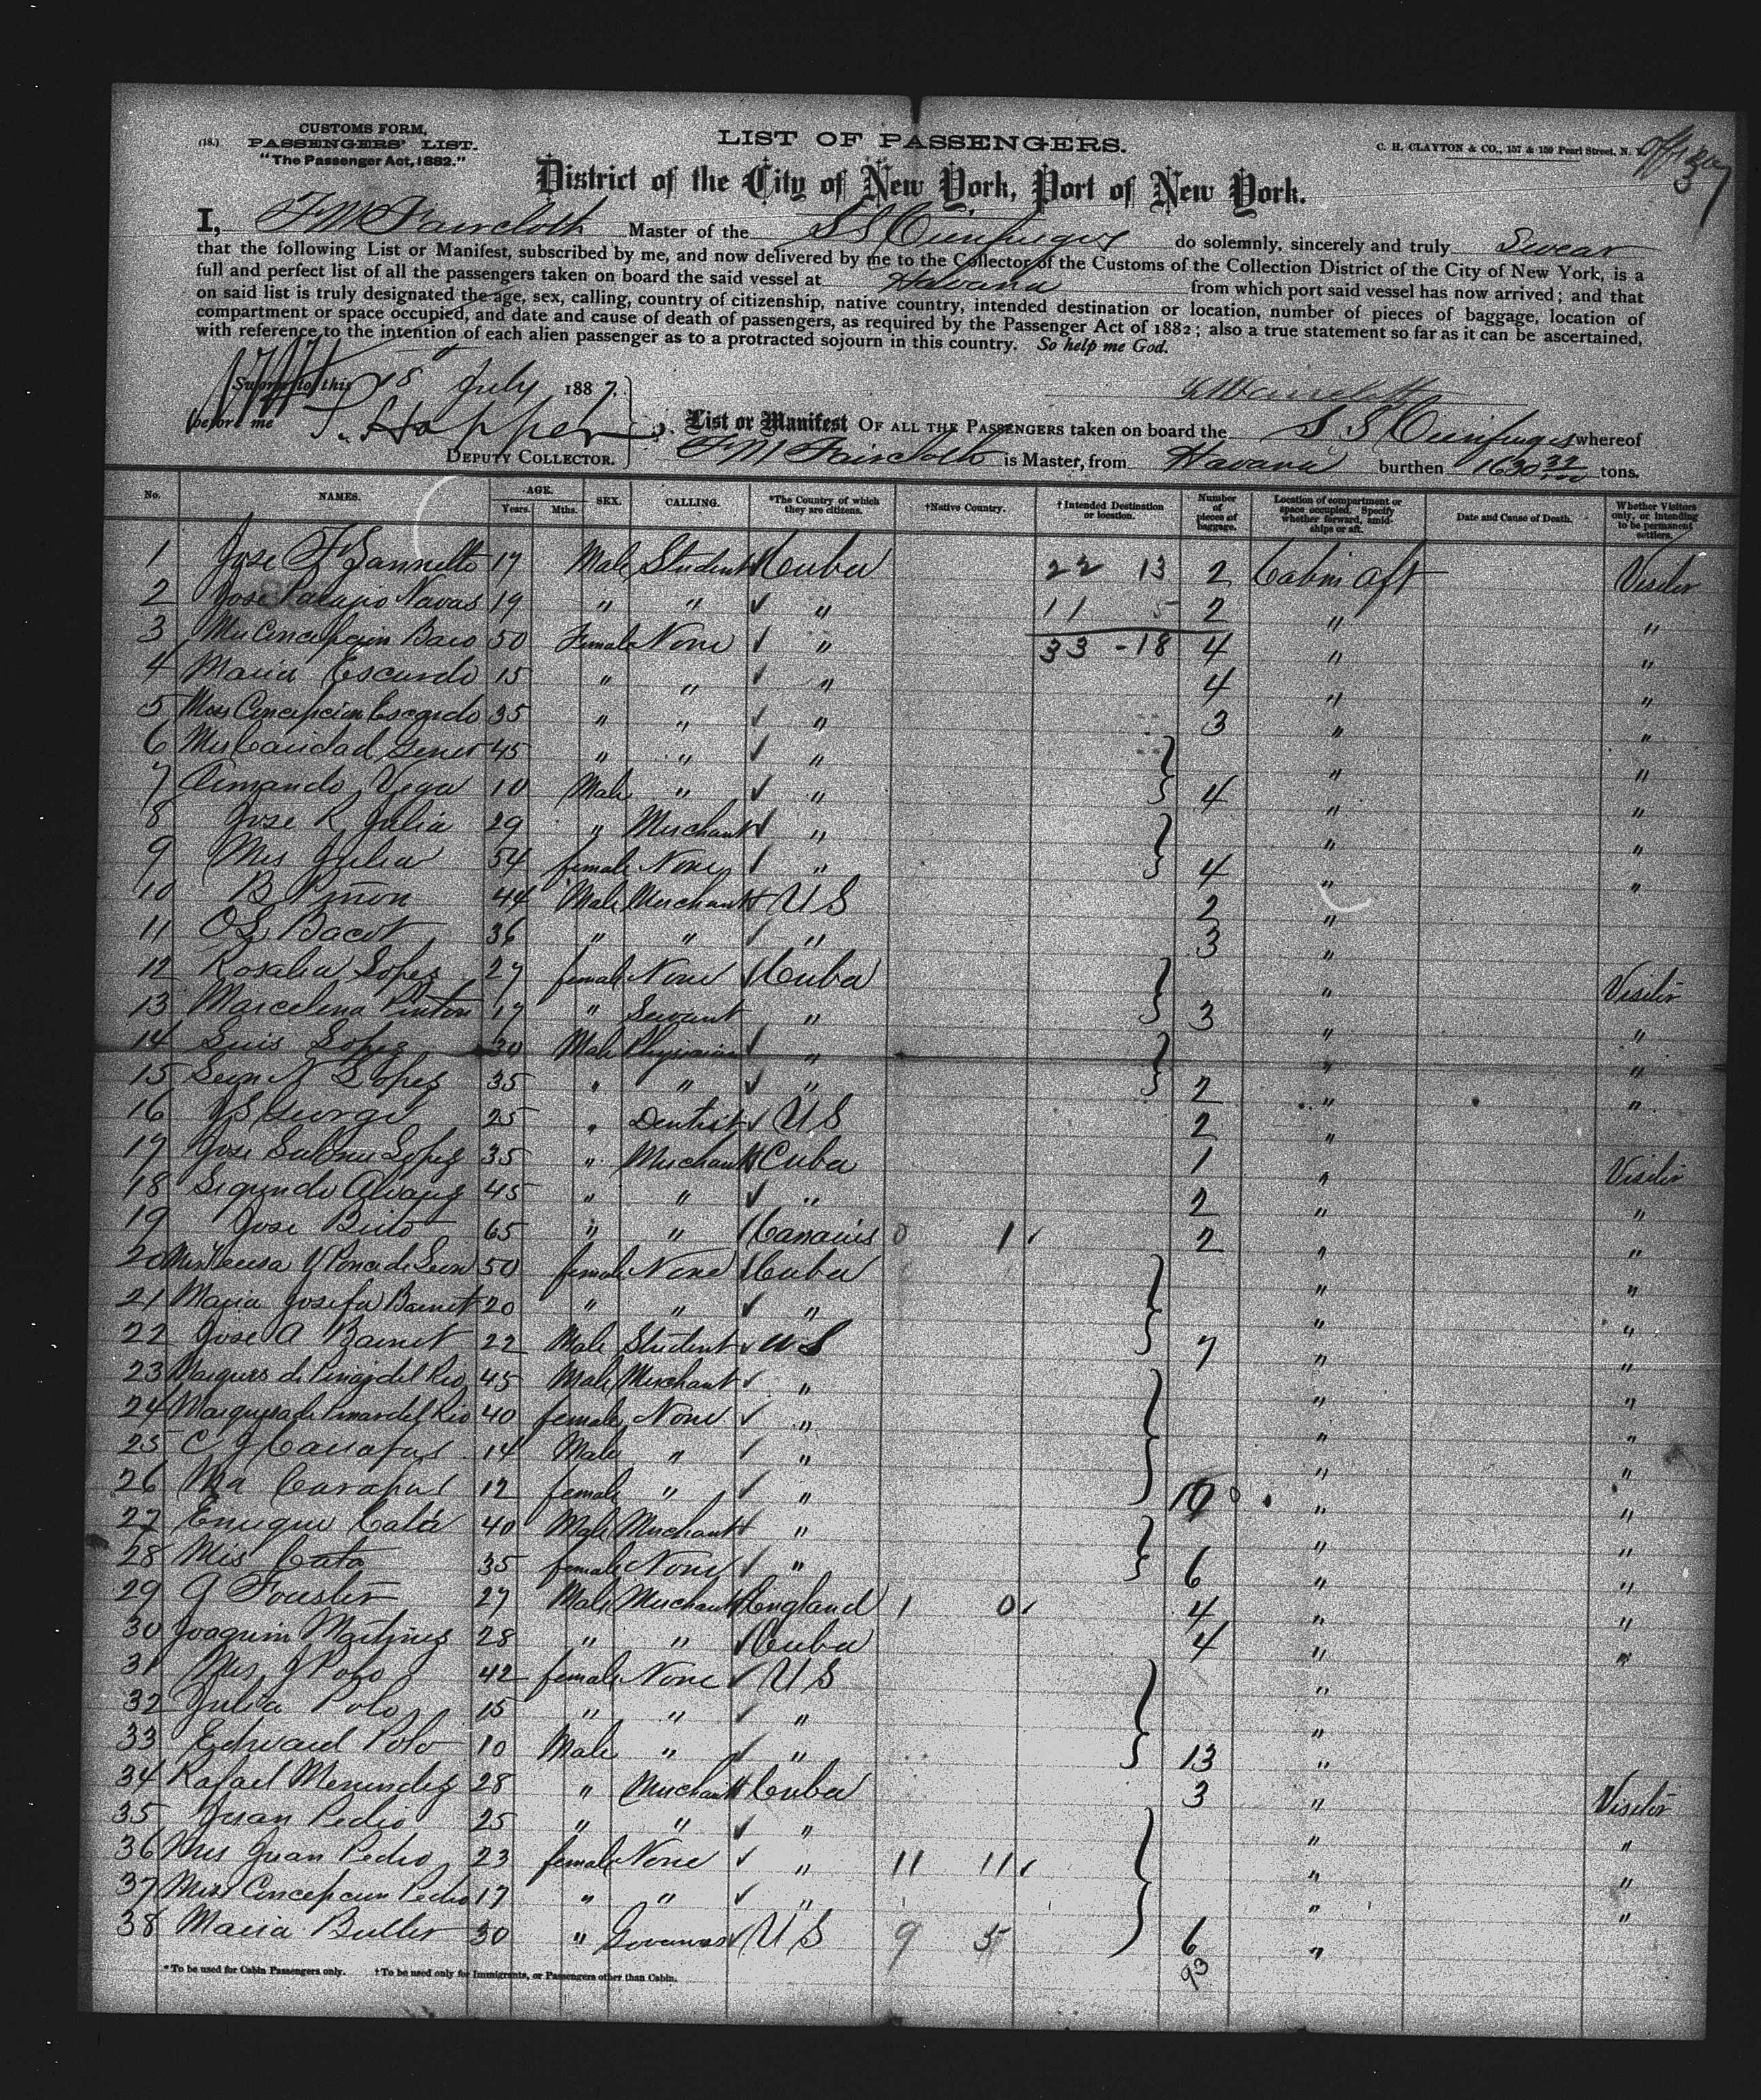 CUSTOMS FORM,
(18.) PASSENGERS' LIST.
"The Passenger Act, 1882."
LIST OF PASSENGERS.
C. H. CLAYTON & CO., 157 & 159 Pearl Street, N. Y.
District of the City of New York, Port of New York.
I, F M Faircloth Master of the S S Cienfuegos do solemnly, sincerely and truly Swear
that the following List or Manifest, subscribed by me, and now delivered by me to the Collector of the Customs of the Collection District of the City of New York, is a
full and perfect list of all the passengers taken on board the said vessel at Havana from which port said vessel has now arrived; and that
on said list is truly designated the age, sex, calling, country of citizenship, native country, intended destination or location, number of pieces of baggage, location of
compartment or space occupied, and date and cause of death of passengers, as required by the Passenger Act of 1882; also a true statement so far as it can be ascertained,
with reference to the intention of each alien passenger as to a protracted sojourn in this country. So help me God.
Sworn to this July 1887.
before me Hopper
DEPUTY COLLECTOR.
F M Faircloth
List or Manifest OF ALL THE PASSENGERS taken on board the S S Cienfuegos whereof
F M Faircloth is Master, from Havana burthen 1630 tons.
No. NAMES. AGE. Years. Mths. SEX. CALLING. *The Country of which they are citizens. †Native Country. †Intended Destination or location. Number of pieces of baggage. Location of compartment or space occupied. Specify whether forward, amidships or aft. Date and Cause of Death. Whether Visitors only, or intending to be permanent settlers.
1 Jose F 17 Male Student Cuba 22 13 2 Cabin Aft Visitor
2 Jose Navas 19 " " " 11 5 2 " "
3 Mrs Concepcion Baro 50 Female None " 33 - 18 4 " "
4 Maria 15 " " " 4 " "
5 Concepcion 35 " " " 3 " "
6 Mrs Caridad Gener 45 " " " " "
7 Armando Vega 10 Male " " 4 " "
8 Jose R Julia 29 " Merchant " " "
9 Mrs Julia 54 female None " 4 " "
10 B Piñon 44 Male Merchant U S 2 "
11 Bacot 36 " " " 3 "
12 Rosalia Lopez 27 female None Cuba " Visitor
13 Marcelina Pinton 17 " Servant " 3 " "
14 Luis Lopez 30 Male Physician " " "
15 Lopez 35 " " " 2 " "
16 George 25 " Dentist U S 2 "
17 Jose Lopez 35 " Merchant Cuba 1 " Visitor
18 Segundo Alvarez 45 " " " 2 " "
19 Jose Brito 65 " " Canaries 0 1 2 " "
20 Ponce de Leon 50 female None Cuba " "
21 Maria Josefa Barnet 20 " " " " "
22 Jose A Barnet 22 Male Student U S 7 " "
23 Marques de Pinar del Rio 45 Male Merchant " " "
24 Marquesa de Pinar del Rio 40 female None " " "
25 C J 14 Male " " " "
26 Ma 12 female " " 10 " "
27 Enrique Catá 40 Male Merchant " " "
28 Mrs Cata 35 female None " 6 " "
29 G Fouster 27 Male Merchant England 1 0 4 " "
30 Joaquin Martinez 28 " " Cuba 4 " "
31 Mrs J Polo 42 female None U S "
32 Julia Polo 15 " " " "
33 Edward Polo 10 Male " " 13 "
34 Rafael Menendez 28 " Merchant Cuba 3 " Visitor
35 Juan Pedro 25 " " " " "
36 Mrs Juan Pedro 23 female None " 11 11 " "
37 Miss Concepcion Pedro 17 " " " " "
38 Maria Butler 30 " U S 9 5 6 "
93
*To be used for Cabin Passengers only. †To be used only for Immigrants, or Passengers other than Cabin.